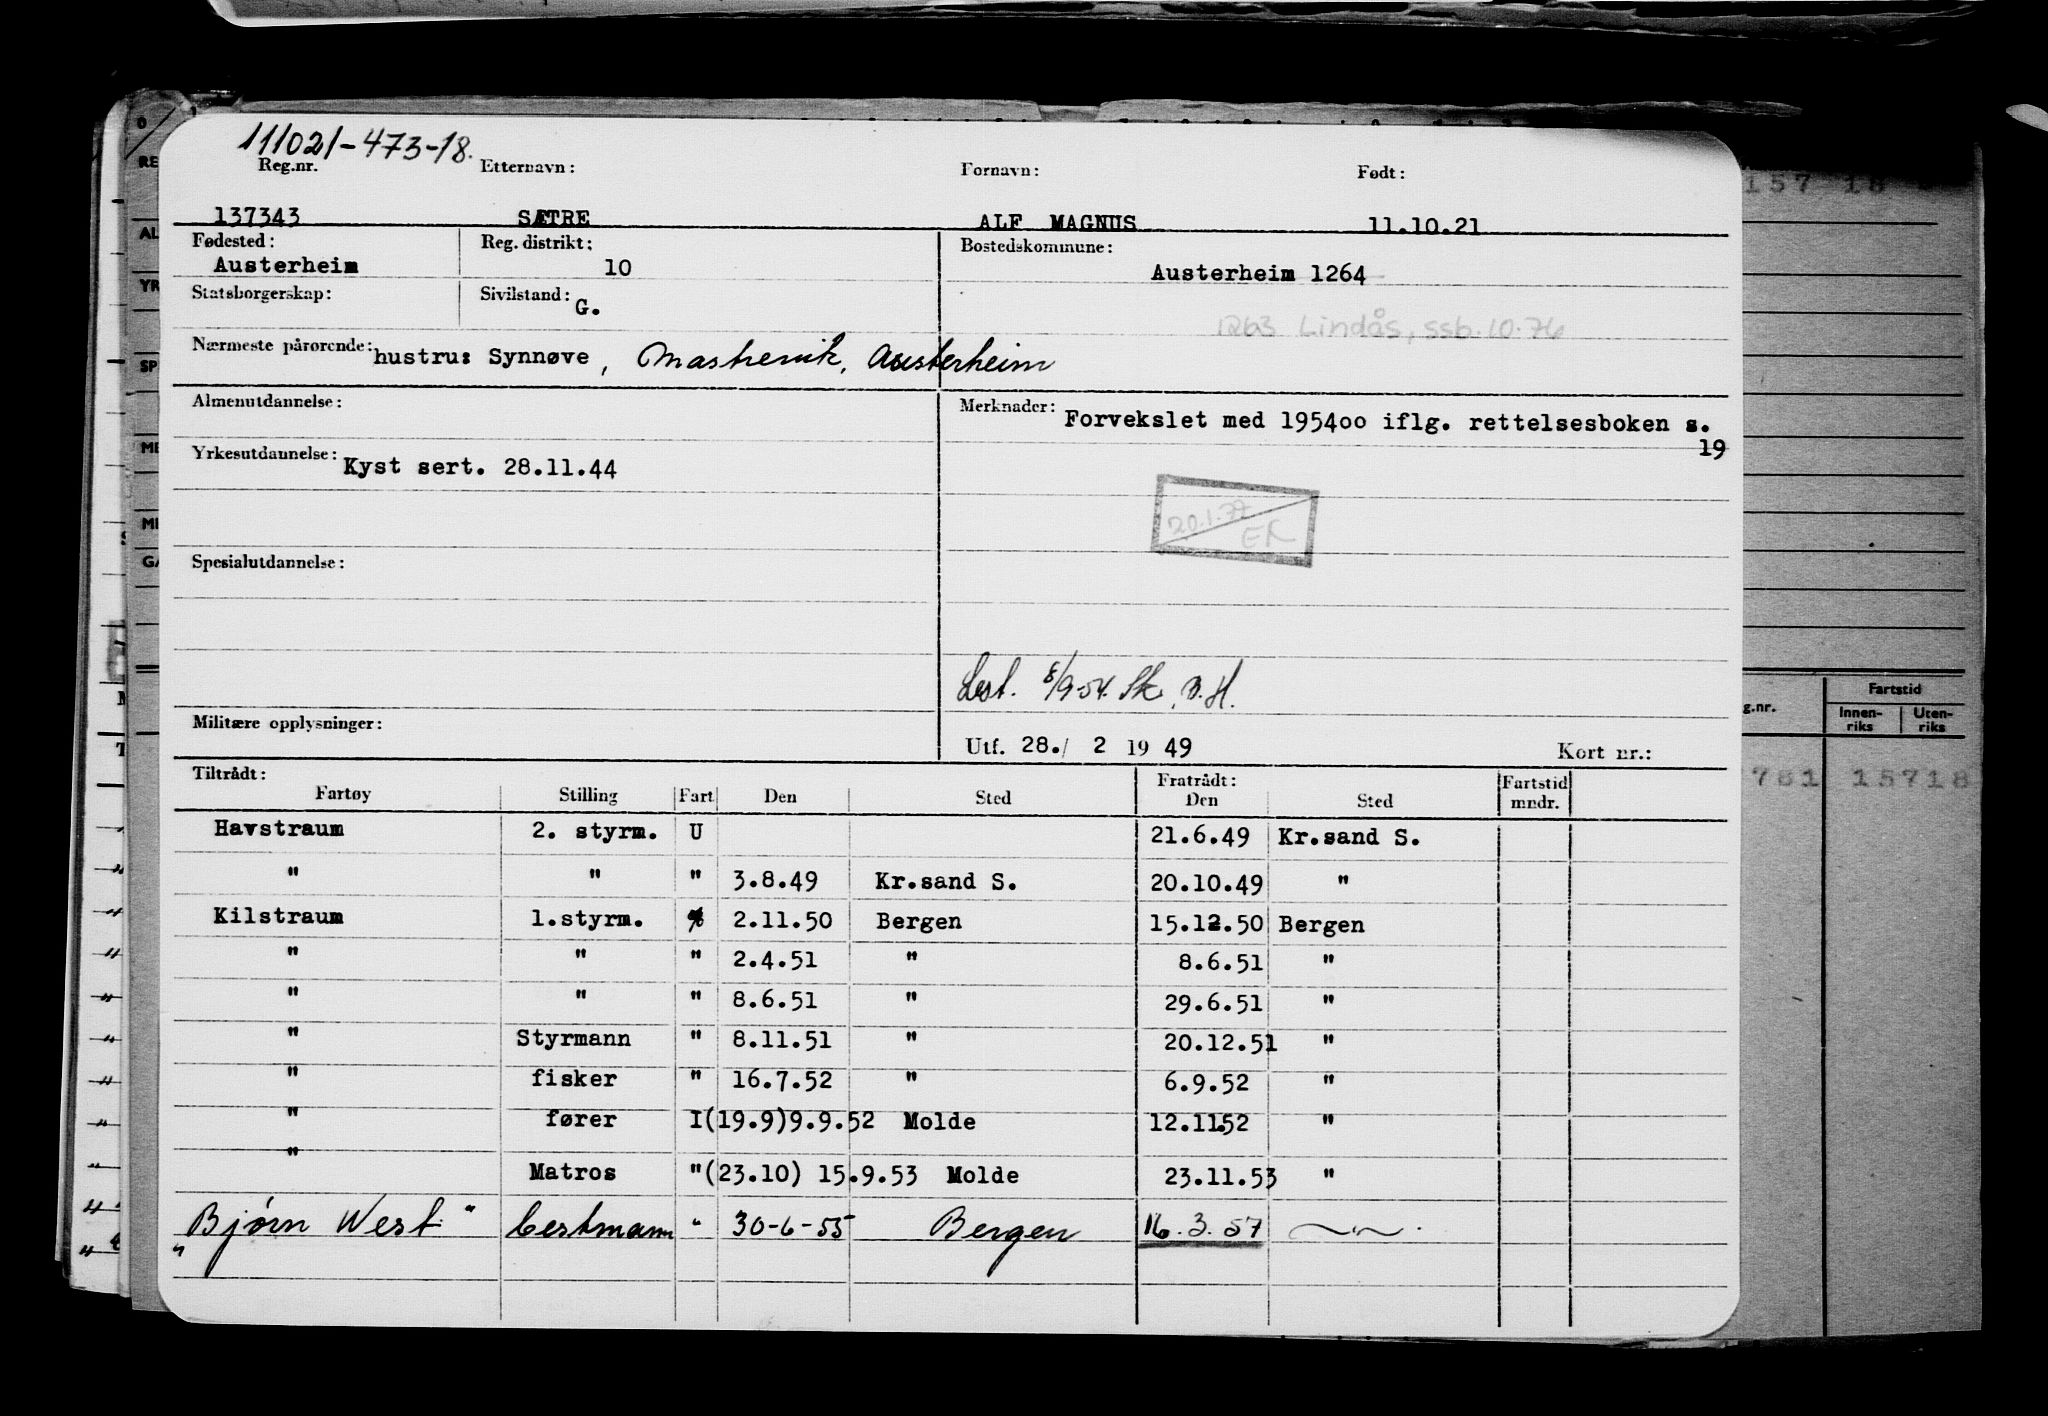 111021-473-18.
Reg.nr. Etternavn: Fornavn: Født:
137343 SÆTRE ALF MAGNUS 11.10.21
Fødested: Reg. distrikt: Bostedskommune:
Austerheim 10 Austerheim 1264
Statsborgerskap: Sivilstand: G.
1263 Lindås, ssb. 10.76
Nærmeste pårørende: hustru: Synnøve, Mastrevik, Austerheim
Almenutdannelse: Merknader: Forvekslet med 195400 iflg. rettelsesboken s.
19
Yrkesutdannelse: Kyst sert. 28.11.44
20.1.77
ER
Spesialutdannelse:
8/9-54. Sk. B.H.
Militære opplysninger:
Utf. 28./ 2 19 49 Kort nr.:
Tiltrådt: Fratrådt: Fartstid
Fartøy Stilling Fart Den Sted Den Sted mndr.
Havstraum 2. styrm. U 21.6.49 Kr.sand S.
" " " 3.8.49 Kr.sand S. 20.10.49 "
Kilstraum 1.styrm. 2.11.50 Bergen 15.12.50 Bergen
" " " 2.4.51 " 8.6.51 "
" " " 8.6.51 " 29.6.51 "
" Styrmann " 8.11.51 " 20.12.51 "
" fisker " 16.7.52 " 6.9.52 "
" fører I(19.9)9.9.52 Molde 12.11.52 "
" Matros "(23.10) 15.9.53 Molde 23.11.53 "
"Bjørn West" bestmann " 30-6-55 Bergen 16.3.57 — " —
RE
AL
YR
SP
ME
MI
GA
157 18
g.nr. Fartstid
Innen-riks Uten-riks
781 15718